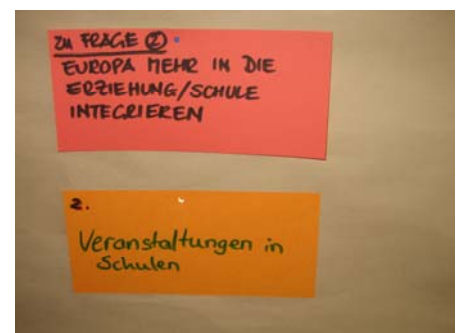 Zu FRAGE ②
EUROPA MEHR IN DIE
ERZIEHUNG/SCHULE
INTEGRIEREN
2.
Veranstaltungen in
Schulen